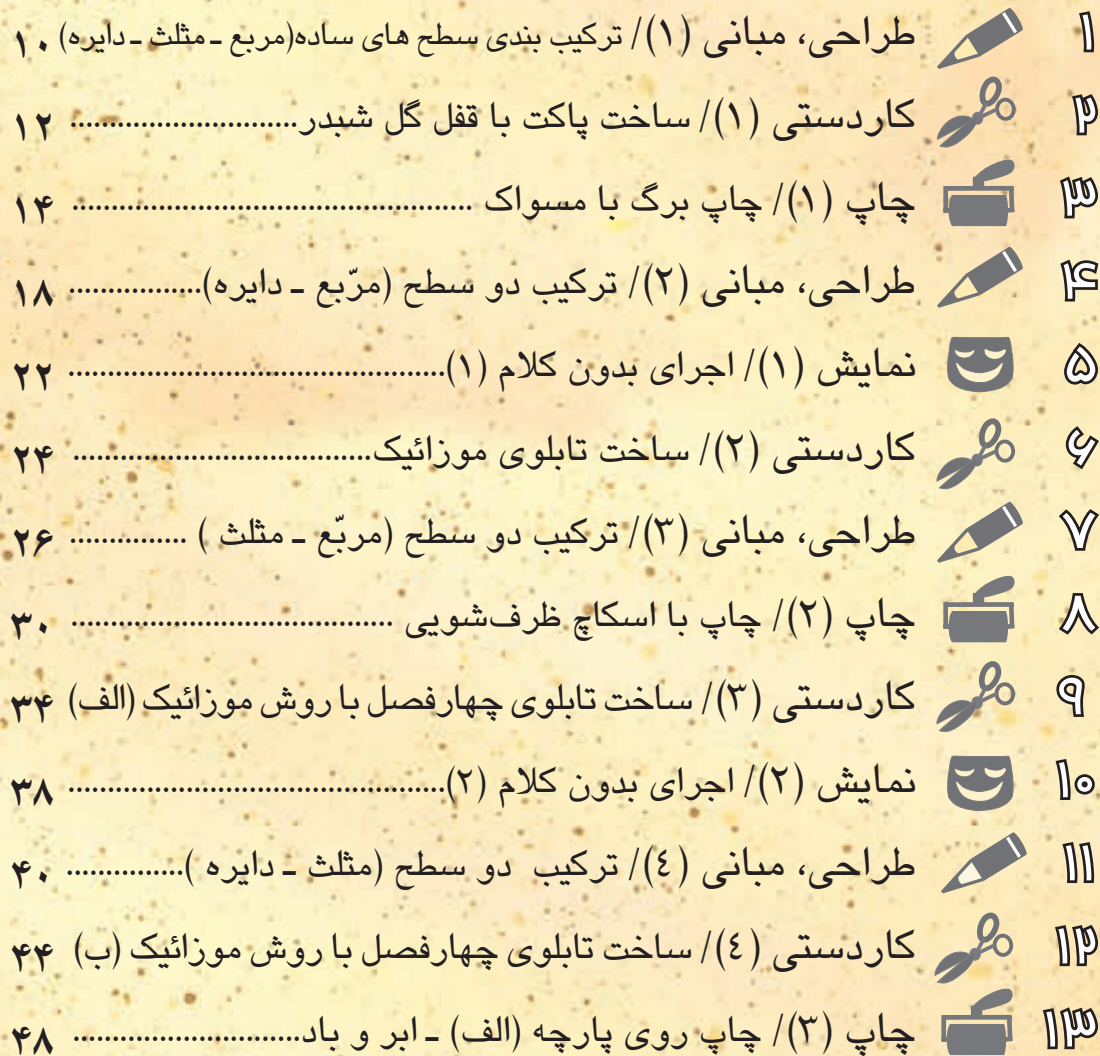 ۱ طراحی، مبانی (۱)/ ترکیب بندی سطح های ساده(مربع ـ مثلث ـ دایره) ۱۰
۲ کاردستی (۱)/ ساخت پاکت با قفل گل شبدر............................ ۱۲
۳ چاپ (۱)/ چاپ برگ با مسواک ................................................ ۱۴
۴ طراحی، مبانی (۲)/ ترکیب دو سطح (مربّع ـ دایره)................ ۱۸
۵ نمایش (۱)/ اجرای بدون کلام (۱)............................................. ۲۲
۶ کاردستی (۲)/ ساخت تابلوی موزائیک.................................... ۲۴
۷ طراحی، مبانی (۳)/ ترکیب دو سطح (مربّع ـ مثلث ) .............. ۲۶
۸ چاپ (۲)/ چاپ با اسکاچ ظرف‌شویی ....................................... ۳۰
۹ کاردستی (۳)/ ساخت تابلوی چهارفصل با روش موزائیک (الف) ۳۴
۱۰ نمایش (۲)/ اجرای بدون کلام (۲)............................................. ۳۸
۱۱ طراحی، مبانی (٤)/ ترکیب دو سطح (مثلث ـ دایره )............... ۴۰
۱۲ کاردستی (٤)/ ساخت تابلوی چهارفصل با روش موزائیک (ب) ۴۴
۱۳ چاپ (۳)/ چاپ روی پارچه (الف) ـ ابر و باد........................... ۴۸